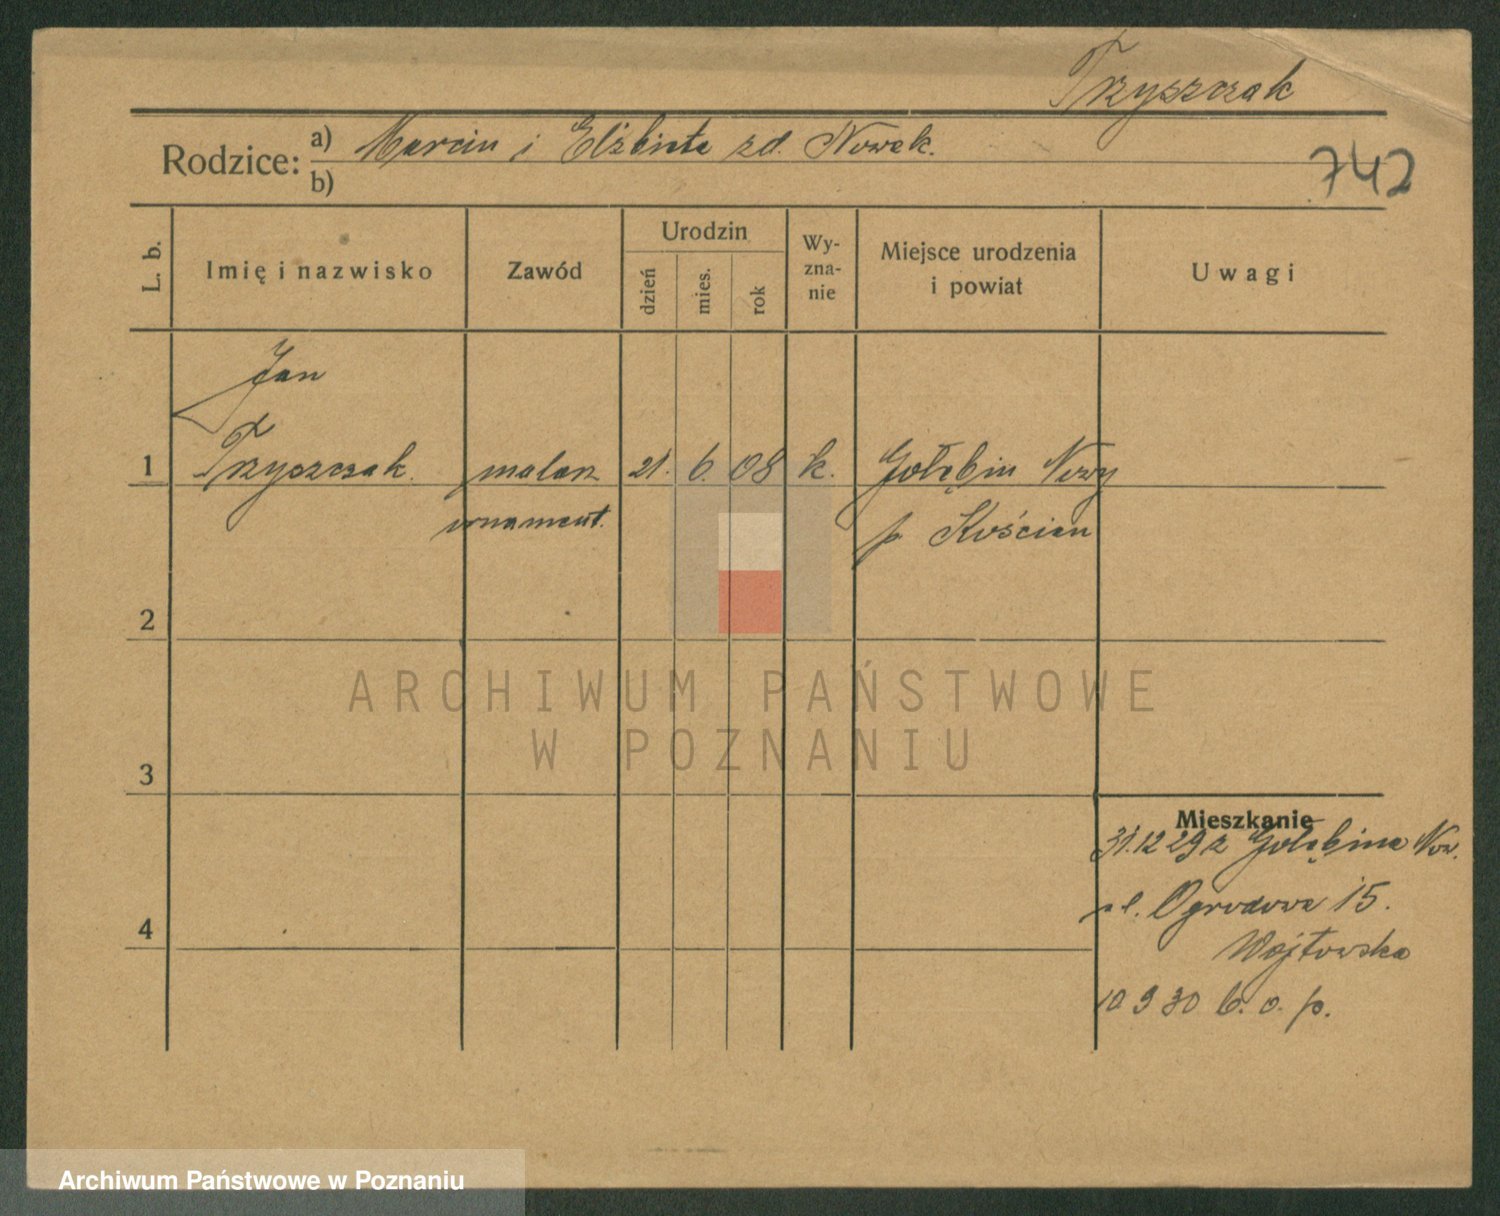 Trzyszczak
Rodzice: a) Marcin i Elżbieta zd. Nowak.
b)
742
L. b.
Imię i nazwisko
Zawód
Urodzin
dzień
mies.
rok
Wy-
zna-
nie
Miejsce urodzenia
i powiat
Uwagi
Jan
1 Trzyszczak. malarz 21. 6. 08 k. Gołębin Nowy
ornament. p. Kościan
2
3
4
Mieszkanie
31.12 29 z Gołębina Now.
ul. Ogrodowa 15.
Wojtowska
10 9 30 b. o. p.
ARCHIWUM PAŃSTWOWE
W POZNANIU
Archiwum Państwowe w Poznaniu